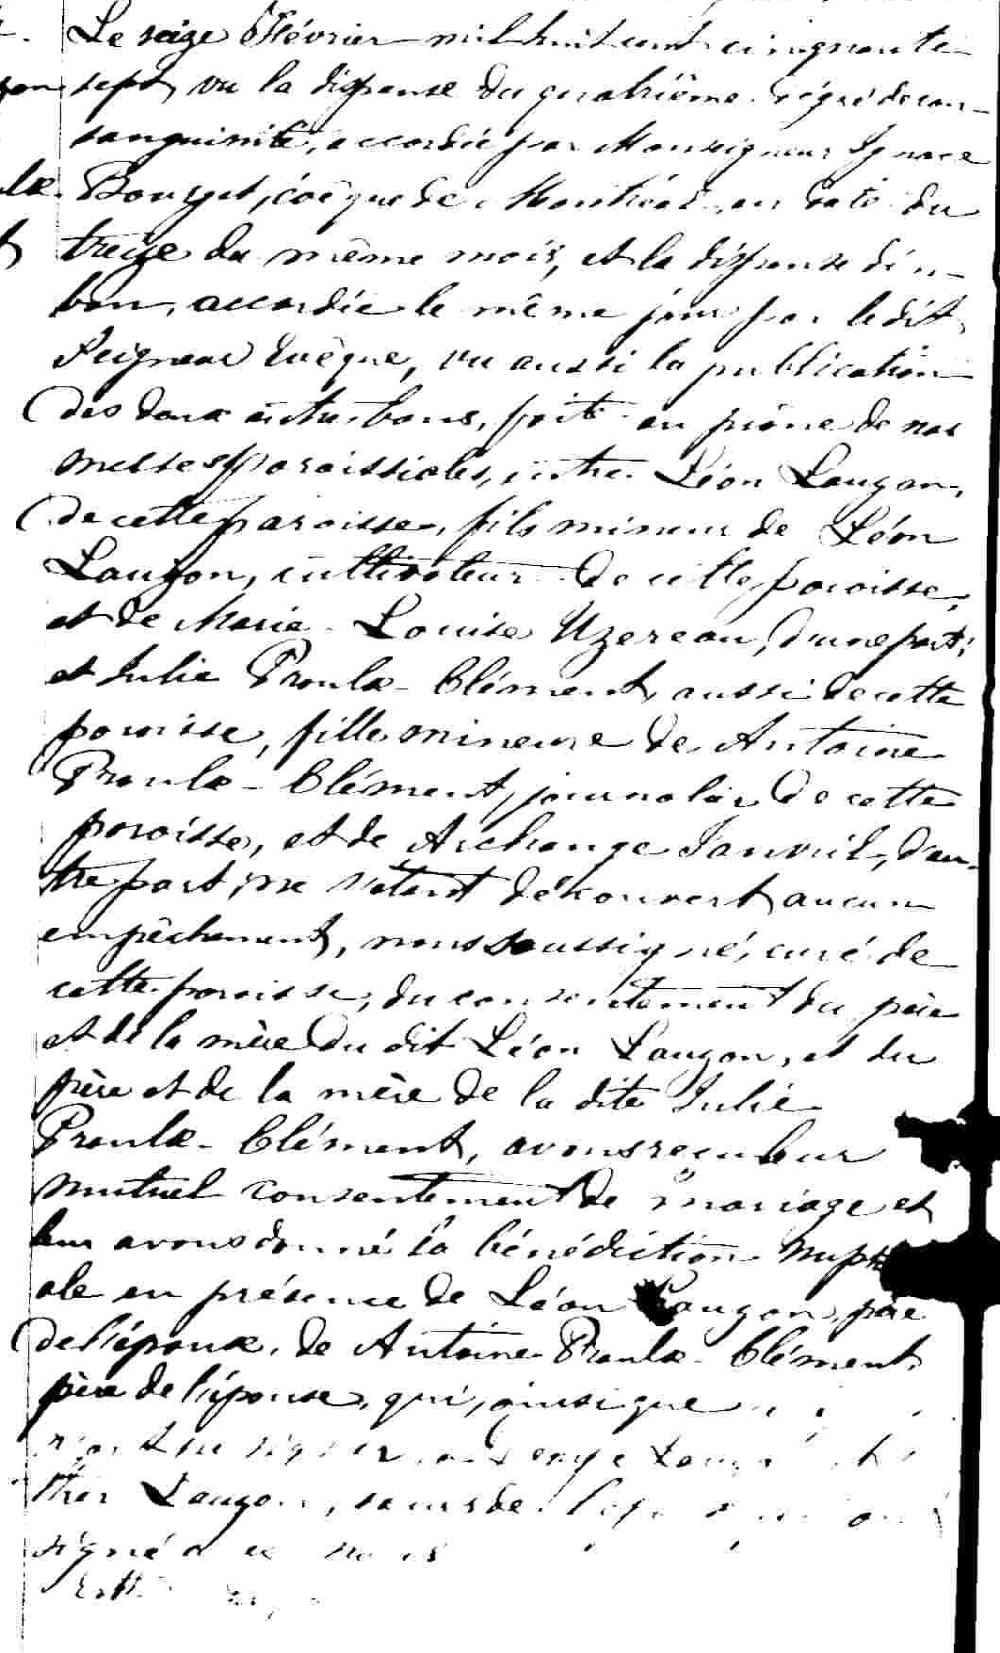 Le seize Février mil huit cent cinquante
sept, vu la dispense du quatrième dégré de con-
sanguinité, accordée par Monseigneur Ignace
Bourget, évêque de Montréal, en date du
treize du même mois, et la dispense d'un
ban, accordée le même jour par le dit
Seigneur Evêque, vu aussi la publication
des deux autres bans, faite au prône de nos
messes paroissiales, entre Léon Lauzon,
de cette paroisse, fils mineur de Léon
Lauzon, cultivateur de cette paroisse,
et de Marie-Louise Uzereau, d'une part;
et Julie Proulx-Clément, aussi de cette
paroisse, fille mineure de Antoine
Proulx-Clément, journalier de cette
paroisse, et de Archange Janvril, d'au-
tre part; ne s'étant découvert aucun
empêchement, nous soussigné, curé de
cette paroisse, du consentement du père
et de la mère du dit Léon Lauzon, et du
père et de la mère de la dite Julie
Proulx-Clément, avons reçu leur
mutuel consentement de mariage et
leur avons donné la bénédiction nupti
ale en présence de Léon Lauzon, père
de l'époux, de Antoine Proulx-Clément
père de l'épouse, qui, ainsi que
signer
Lauzon, soeurs de
signé